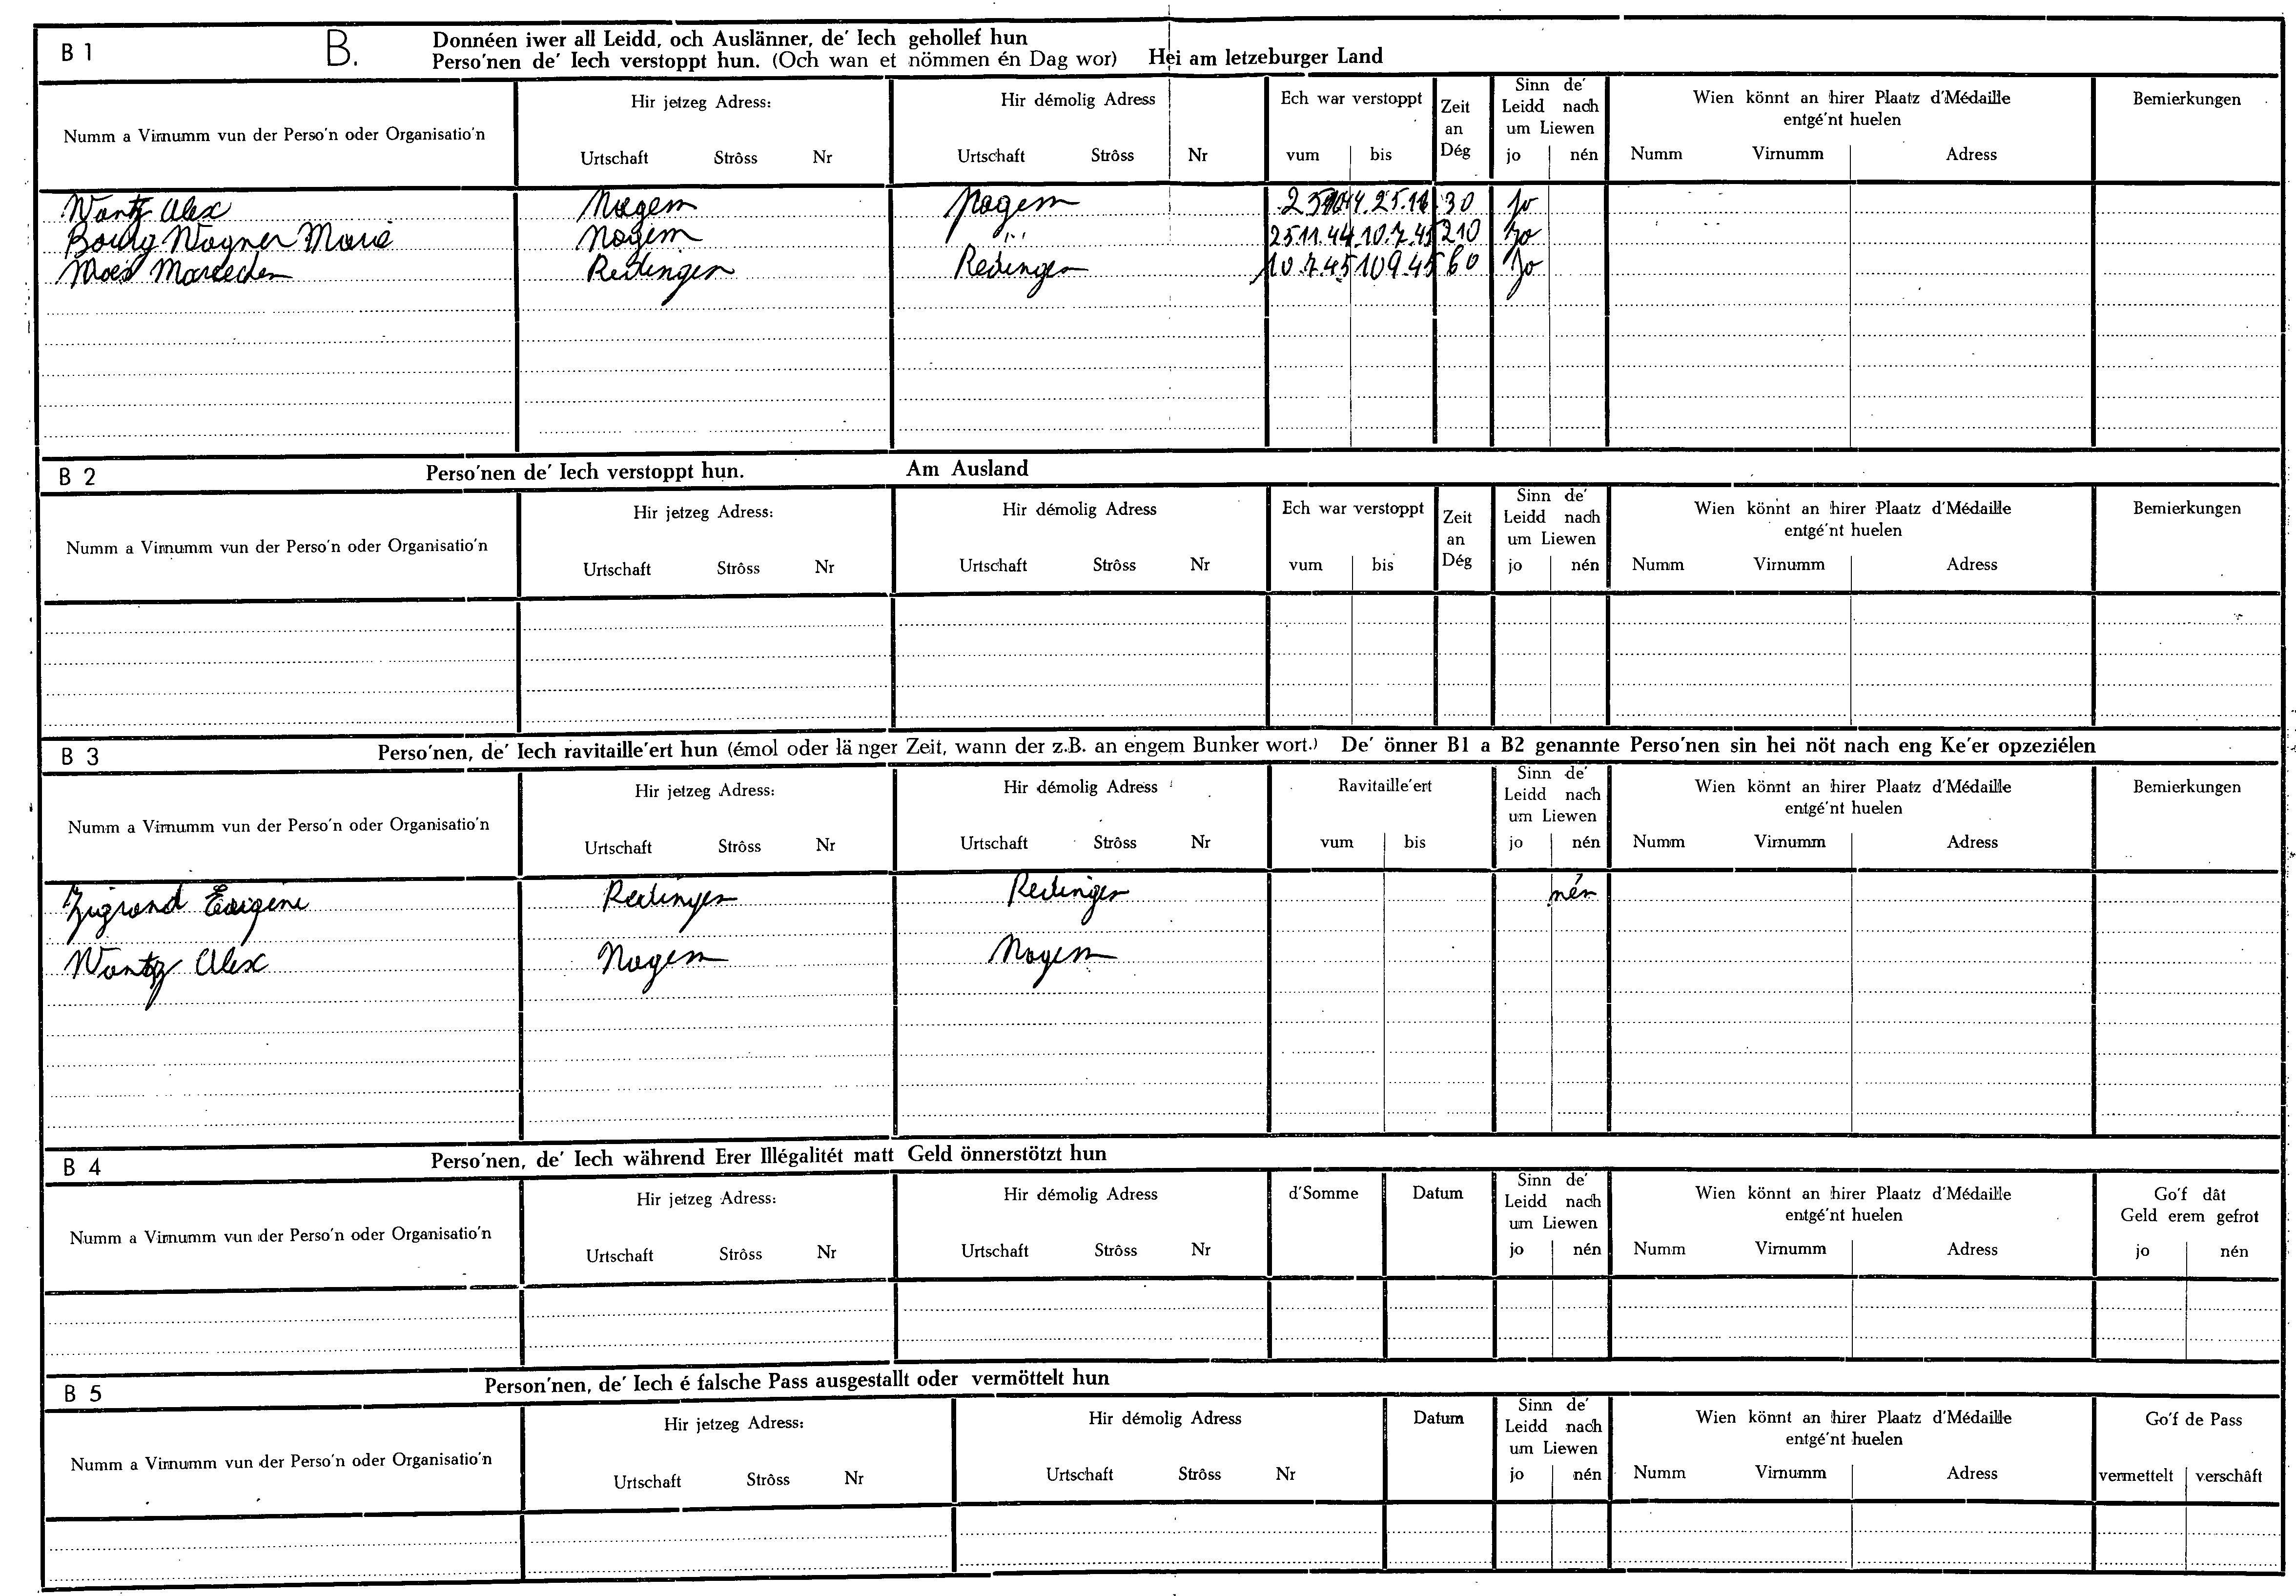 B 1 B. Donnéen iwer all Leidd, och Auslänner, de' Iech gehollef hun
Perso'nen de' Iech verstoppt hun. (Och wan et nömmen én Dag wor) Hei am letzeburger Land
Numm a Virnumm vun der Perso'n oder Organisatio'n
Hir jetzeg Adress:
Urtschaft Strôss Nr
Hir démolig Adress
Urtschaft Strôss Nr
Ech war verstoppt
vum bis
Zeit
an
Dég
Sinn de'
Leidd nach
um Liewen
jo nén
Wien könnt an hirer Plaatz d'Médaille
entgé'nt huelen
Numm Virnumm Adress
Bemierkungen
Wantz Alex Nagem Nagem 25.11 30 Jo
Bourg Wagner Marie Nagem " 25.11.44 10.7.45 210 Jo
Moes Redingen Redingen 10.7.45 10.9.45 60 Jo
B 2 Perso'nen de' Iech verstoppt hun. Am Ausland
Numm a Virnumm vun der Perso'n oder Organisatio'n
Hir jetzeg Adress:
Urtschaft Strôss Nr
Hir démolig Adress
Urtschaft Strôss Nr
Ech war verstoppt
vum bis
Zeit
an
Dég
Sinn de'
Leidd nach
um Liewen
jo nén
Wien könnt an hirer Plaatz d'Médaille
entgé'nt huelen
Numm Virnumm Adress
Bemierkungen
B 3 Perso'nen, de' Iech ravitaille'ert hun (émol oder länger Zeit, wann der z.B. an engem Bunker wort.) De' önner B1 a B2 genannte Perso'nen sin hei nöt nach eng Ke'er opzeziélen
Numm a Virnumm vun der Perso'n oder Organisatio'n
Hir jetzeg Adress:
Urtschaft Strôss Nr
Hir démolig Adress
Urtschaft Strôss Nr
Ravitaille'ert
vum bis
Sinn de'
Leidd nach
um Liewen
jo nén
Wien könnt an hirer Plaatz d'Médaille
entgé'nt huelen
Numm Virnumm Adress
Bemierkungen
Zigrand Eugène Redingen Redingen nén
Wantz Alex Nagem Nagem
B 4 Perso'nen, de' Iech während Erer Illégalitét matt Geld önnerstötzt hun
Numm a Virnumm vun der Perso'n oder Organisatio'n
Hir jetzeg Adress:
Urtschaft Strôss Nr
Hir démolig Adress
Urtschaft Strôss Nr
d'Somme Datum
Sinn de'
Leidd nach
um Liewen
jo nén
Wien könnt an hirer Plaatz d'Médaille
entgé'nt huelen
Numm Virnumm Adress
Go'f dât
Geld erem gefrot
jo nén
B 5 Person'nen, de' Iech é falsche Pass ausgestallt oder vermöttelt hun
Numm a Virnumm vun der Perso'n oder Organisatio'n
Hir jetzeg Adress:
Urtschaft Strôss Nr
Hir démolig Adress
Urtschaft Strôss Nr
Datum
Sinn de'
Leidd nach
um Liewen
jo nén
Wien könnt an hirer Plaatz d'Médaille
entgé'nt huelen
Numm Virnumm Adress
Go'f de Pass
vermettelt verschâft